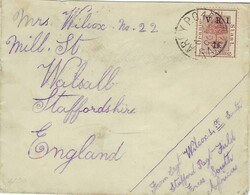 Mrs. Wilcox. No. 22
Mill. St
Walsall
Staffordshire
England
V.R.I
ARMY PO
From Sergt Wilcox
Stafford
Field
Force South
Africa